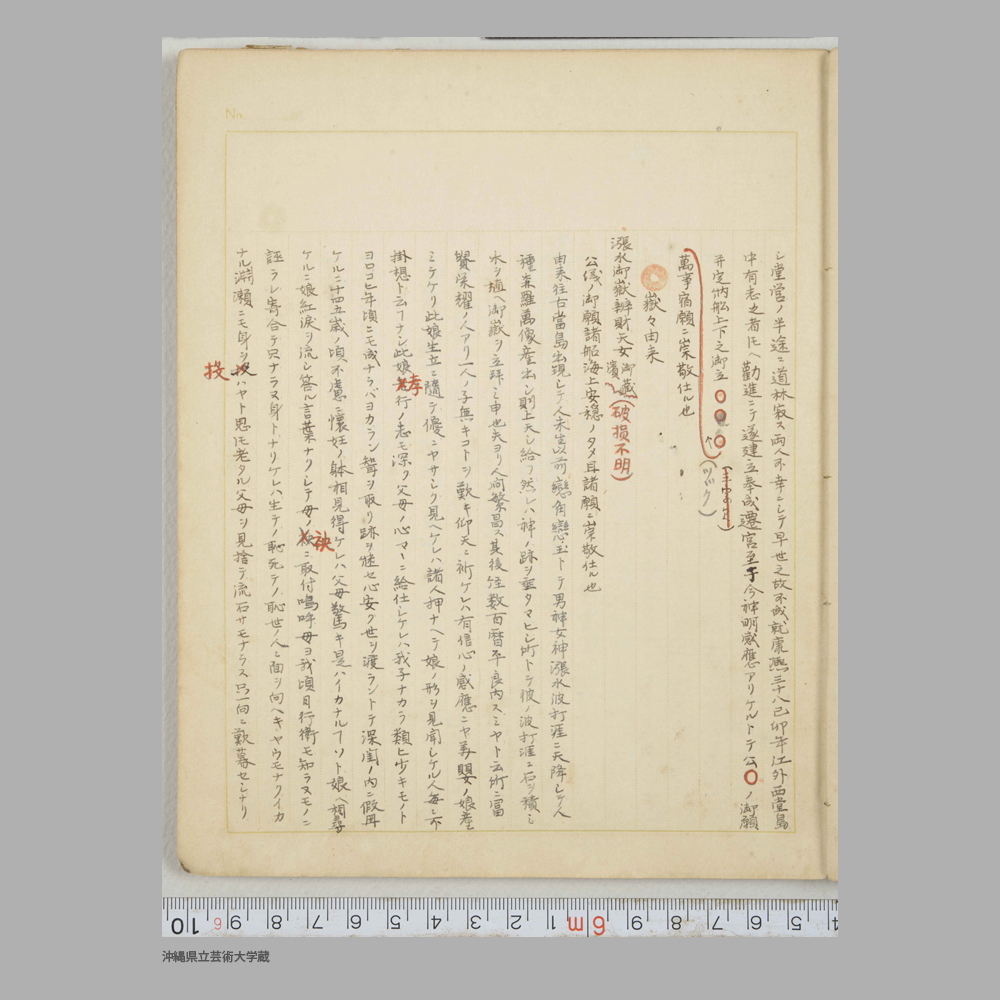 シ堂営ノ半途ニ道林寂ス両人不幸ニシテ早世之故不成就康熙三十八己卯年江外西堂島
中有志之者ヒヘ勧進ニテ遂建立奉成遷宮至于今神明感應アリケルトテ公〇ノ御願
并定納船上下之御立〇〇
(ツヅク)
萬事宿願ニ崇敬仕ル也
嶽々由来
漲水御嶽辨財天女 御嶽 濱(破損不明)
公儀ノ御願諸船海上安穏ノタメ且諸願ニ崇敬仕ル也
由来往古當島出現シテ人未生以前戀角戀玉トテ男神女神漲水波打涯ニ天降シテ人
種森羅萬像産出シ則上天シ給フ然レハ神ノ跡ヲ垂タマヒシ所トテ彼ノ波打涯ニ石ヲ積ミ
木ヲ植ヘ御嶽ヲ立拝ミ申也夫ヨリ人間繁昌ス其後経数百暦平良内スミヤト云所ニ富
賢栄耀ノ人アリ一人ノ子無キコトヲ歎キ仰天ニ祈ケレハ有信心ノ感應ニヤ美嬰ノ娘産
ミケケリ此娘生立ニ隨テ優ニヤサシク見ヘケレハ諸人押ナヘテ娘ノ形ヲ見聞シケル人毎ニ不
掛想ト云フナシ此娘孝行ノ志モ深ク父母ノ心マヽニ給仕シケレハ我子ナカラ類ヒ少キモノト
ヨロコヒ年頃ニモ成ナラバヨカラン聟ヲ取リ跡ヲ継セ心安ク世ヲ渡ラントテ深閨ノ内ニ仮再
ケルニ十四五歳ノ頃不慮ニ懐妊ノ躰相見得ケレハ父母驚キ是ハイカナルフソト娘ヘ相尋
ケルニ娘紅涙ヲ流シ答ル言葉ナクシテ母ノ袂ニ取付嗚呼母ヨ我頃日行衛モ知ラヌモノニ
誣ラレ寄合テ只ナラヌ身トナリケレハ生テノ恥死テノ恥世ノ人ニ面ヲ向ヘキヤウモナクイカ
ナル淵瀬ニモ身ヲ投ハヤト思ヒ老タル父母ヲ見捨テ流石サモナラス只一向ニ歎暮セシナリ
孝
袂
投
No.
10 6 9 8 7 6 5 4 3 2 1 6m 9 8 7 6 5 4
沖縄県立芸術大学蔵